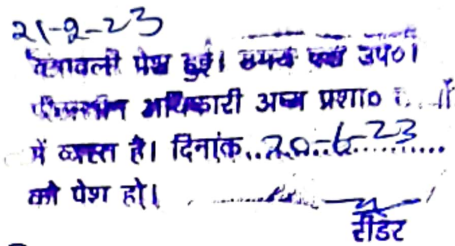 21-2-23
पत्रावली पेश हुई। उभय पक्ष उप०।
पीठासीन अधिकारी अन्य प्रशा०
में व्यस्त है। दिनांक..20-6-23......
को पेश हो।
रीडर